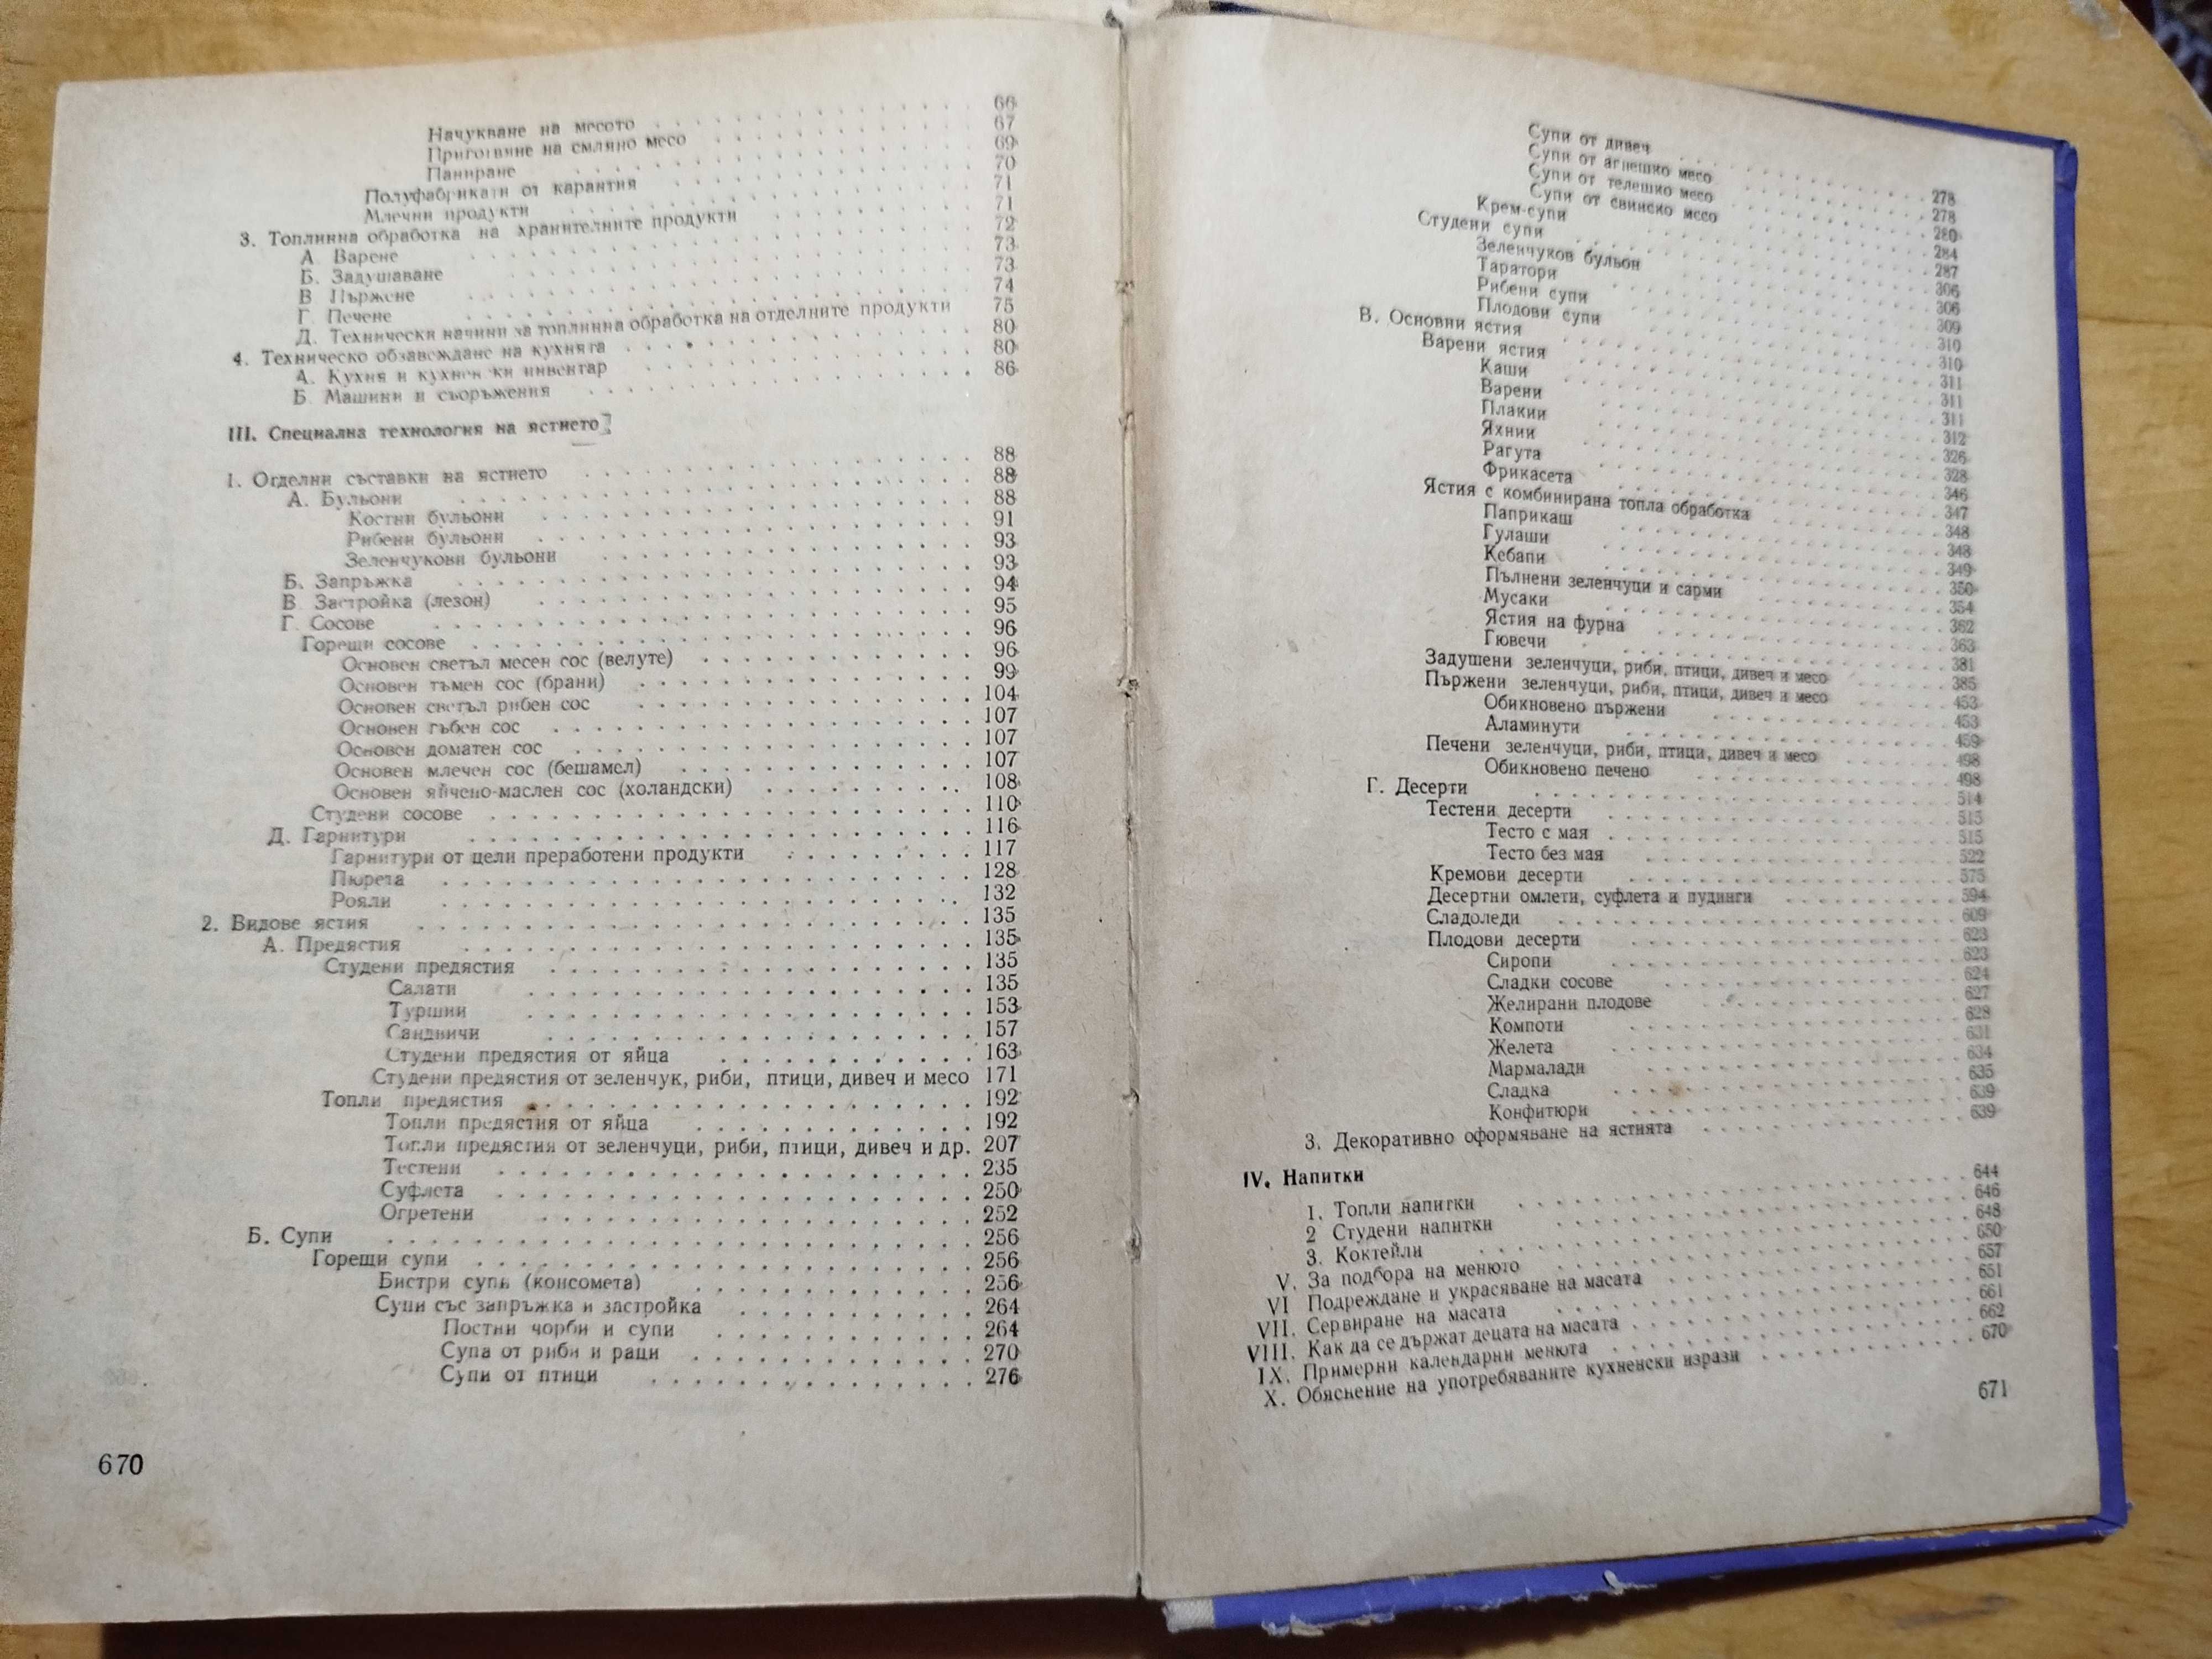 Начукване на месото 66
Приготвяне на смляно месо 67
Паниране 69
Полуфабрикати от карантия 70
Млечни продукти 71
3. Топлинна обработка на хранителните продукти 71
А. Варене 72
Б. Задушаване 73
В Пържене 73
Г. Печене 74
Д. Технически начини за топлинна обработка на отделните продукти 75
4. Техническо обзавеждане на кухнята 80
А. Кухня и кухненски инвентар 80
Б. Машини и съоръжения 86
III. Специална технология на ястието
1. Отделни съставки на ястието 88
А. Бульони 88
Костни бульони 88
Рибени бульони 91
Зеленчукови бульони 93
Б. Запръжка 93
В Застройка (лезон) 94
Г. Сосове 95
Горещи сосове 96
Основен светъл месен сос (велуте) 96
Основен тъмен сос (брани) 99
Основен светъл рибен сос 104
Основен гъбен сос 107
Основен доматен сос 107
Основен млечен сос (бешамел) 107
Основен яйчено-маслен сос (холандски) 108
Студени сосове 110
Д. Гарнитури 116
Гарнитури от цели преработени продукти 117
Пюрета 128
Рояли 132
2. Видове ястия 135
А. Предястия 135
Студени предястия 135
Салати 135
Туршии 153
Сандвичи 157
Студени предястия от яйца 163
Студени предястия от зеленчук, риби, птици, дивеч и месо 171
Топли предястия 192
Топли предястия от яйца 192
Топли предястия от зеленчуци, риби, птици, дивеч и др. 207
Тестени 235
Суфлета 250
Огретени 252
Б. Супи 256
Горещи супи 256
Бистри супи (консомета) 256
Супи със запръжка и застройка 264
Постни чорби и супи 264
Супа от риби и раци 270
Супи от птици 276
670
Супи от дивеч 278
Супи от агнешко месо 278
Супи от телешко месо 280
Супи от свинско месо 284
Крем-супи 287
Студени супи 306
Зеленчуков бульон 306
Таратори 309
Рибени супи 310
Плодови супи 310
В. Основни ястия 311
Варени ястия 311
Каши 311
Варени 312
Плакии 326
Яхнии 328
Рагута 346
Фрикасета 347
Ястия с комбинирана топла обработка 348
Паприкаш 348
Гулаши 349
Кебапи 350
Пълнени зеленчуци и сарми 354
Мусаки 362
Ястия на фурна 363
Гювечи 381
Задушени зеленчуци, риби, птици, дивеч и месо 385
Пържени зеленчуци, риби, птици, дивеч и месо 453
Обикновено пържени 453
Аламинути 459
Печени зеленчуци, риби, птици, дивеч и месо 498
Обикновено печено 498
Г. Десерти 514
Тестени десерти 515
Тесто с мая 515
Тесто без мая 522
Кремови десерти 575
Десертни омлети, суфлета и пудинги 594
Сладоледи 609
Плодови десерти 623
Сиропи 623
Сладки сосове 624
Желирани плодове 627
Компоти 628
Желета 631
Мармалади 634
Сладка 635
Конфитюри 639
3. Декоративно оформяване на ястията 639
IV. Напитки
1. Топли напитки 644
2 Студени напитки 646
3. Коктейли 648
V. За подбора на менюто 650
VI Подреждане и украсяване на масата 657
VII. Сервиране на масата 651
VIII. Как да се държат децата на масата 661
IX. Примерни календарни менюта 662
X. Обяснение на употребяваните кухненски изрази 670
671